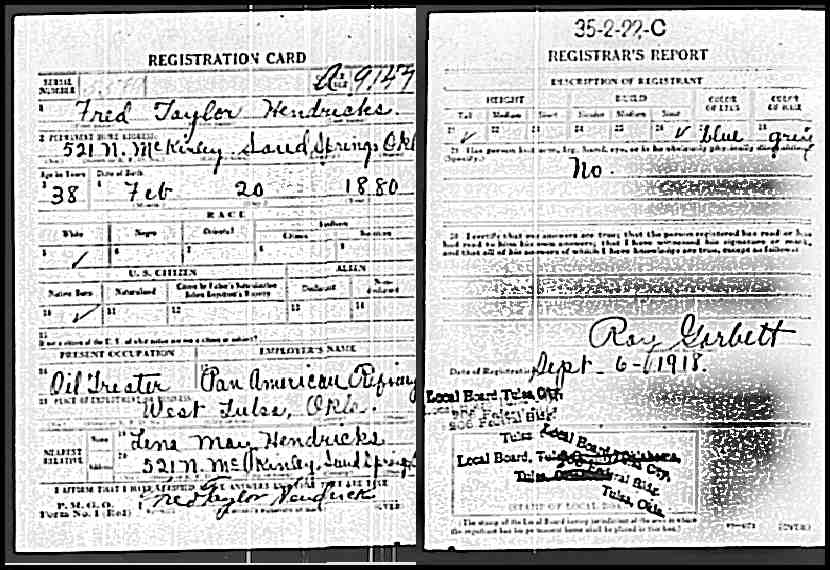 REGISTRATION CARD
SERIAL NUMBER
9147
Fred Taylor Hendricks.
PERMANENT HOME ADDRESS
521 N. McKinley. Sand Springs Okl
Age in Years Date of Birth
38 Feb 20 1880
RACE
White Negro Oriental Indian
Citizen
5 ✓ 6 7 8 9
U. S. CITIZEN ALIEN
Native Born Naturalized Citizen by Father's Naturalization Before Registrant's Majority Declarant Non-declarant
10 ✓ 11 12 13 14
15
PRESENT OCCUPATION EMPLOYER'S NAME
Oil Treater Pan American Refining
PLACE OF EMPLOYMENT OR BUSINESS
West Tulsa, Okla.
NEAREST RELATIVE
Name Lena May Hendricks
Address 521 N. McKinley. Sand Springs
I AFFIRM THAT I HAVE VERIFIED ABOVE ANSWERS AND THAT THEY ARE TRUE
P. M. G. O.
Form No. 1 (Red)
Fred Taylor Hendrick
(OVER)
35-2-22-C
REGISTRAR'S REPORT
DESCRIPTION OF REGISTRANT
HEIGHT BUILD COLOR OF EYES COLOR OF HAIR
Tall Medium Short Slender Medium Stout
21 ✓ 22 23 24 25 26 ✓ blue 28
29 Has person lost arm, leg, hand, eye, or is he obviously physically disqualified?
(Specify.)
No.
30 I certify that my answers are true; that the person registered has read or has
had read to him his own answers; that I have witnessed his signature or mark,
and that all of his answers of which I have knowledge are true, except as follows:
Roy Gorbett
Date of Registration Sept - 6 - 1918.
Local Board Tulsa City.
206 Federal Bldg.
Tulsa
Local Board, Tulsa, Oklahoma,
Local Board Tulsa City,
206 Federal Bldg.
Tulsa, Okla.
(STAMP OF LOCAL BOARD)
(The stamp of the Local Board having jurisdiction of the area in which
the registrant has his permanent home shall be placed in this box.)
(OVER)